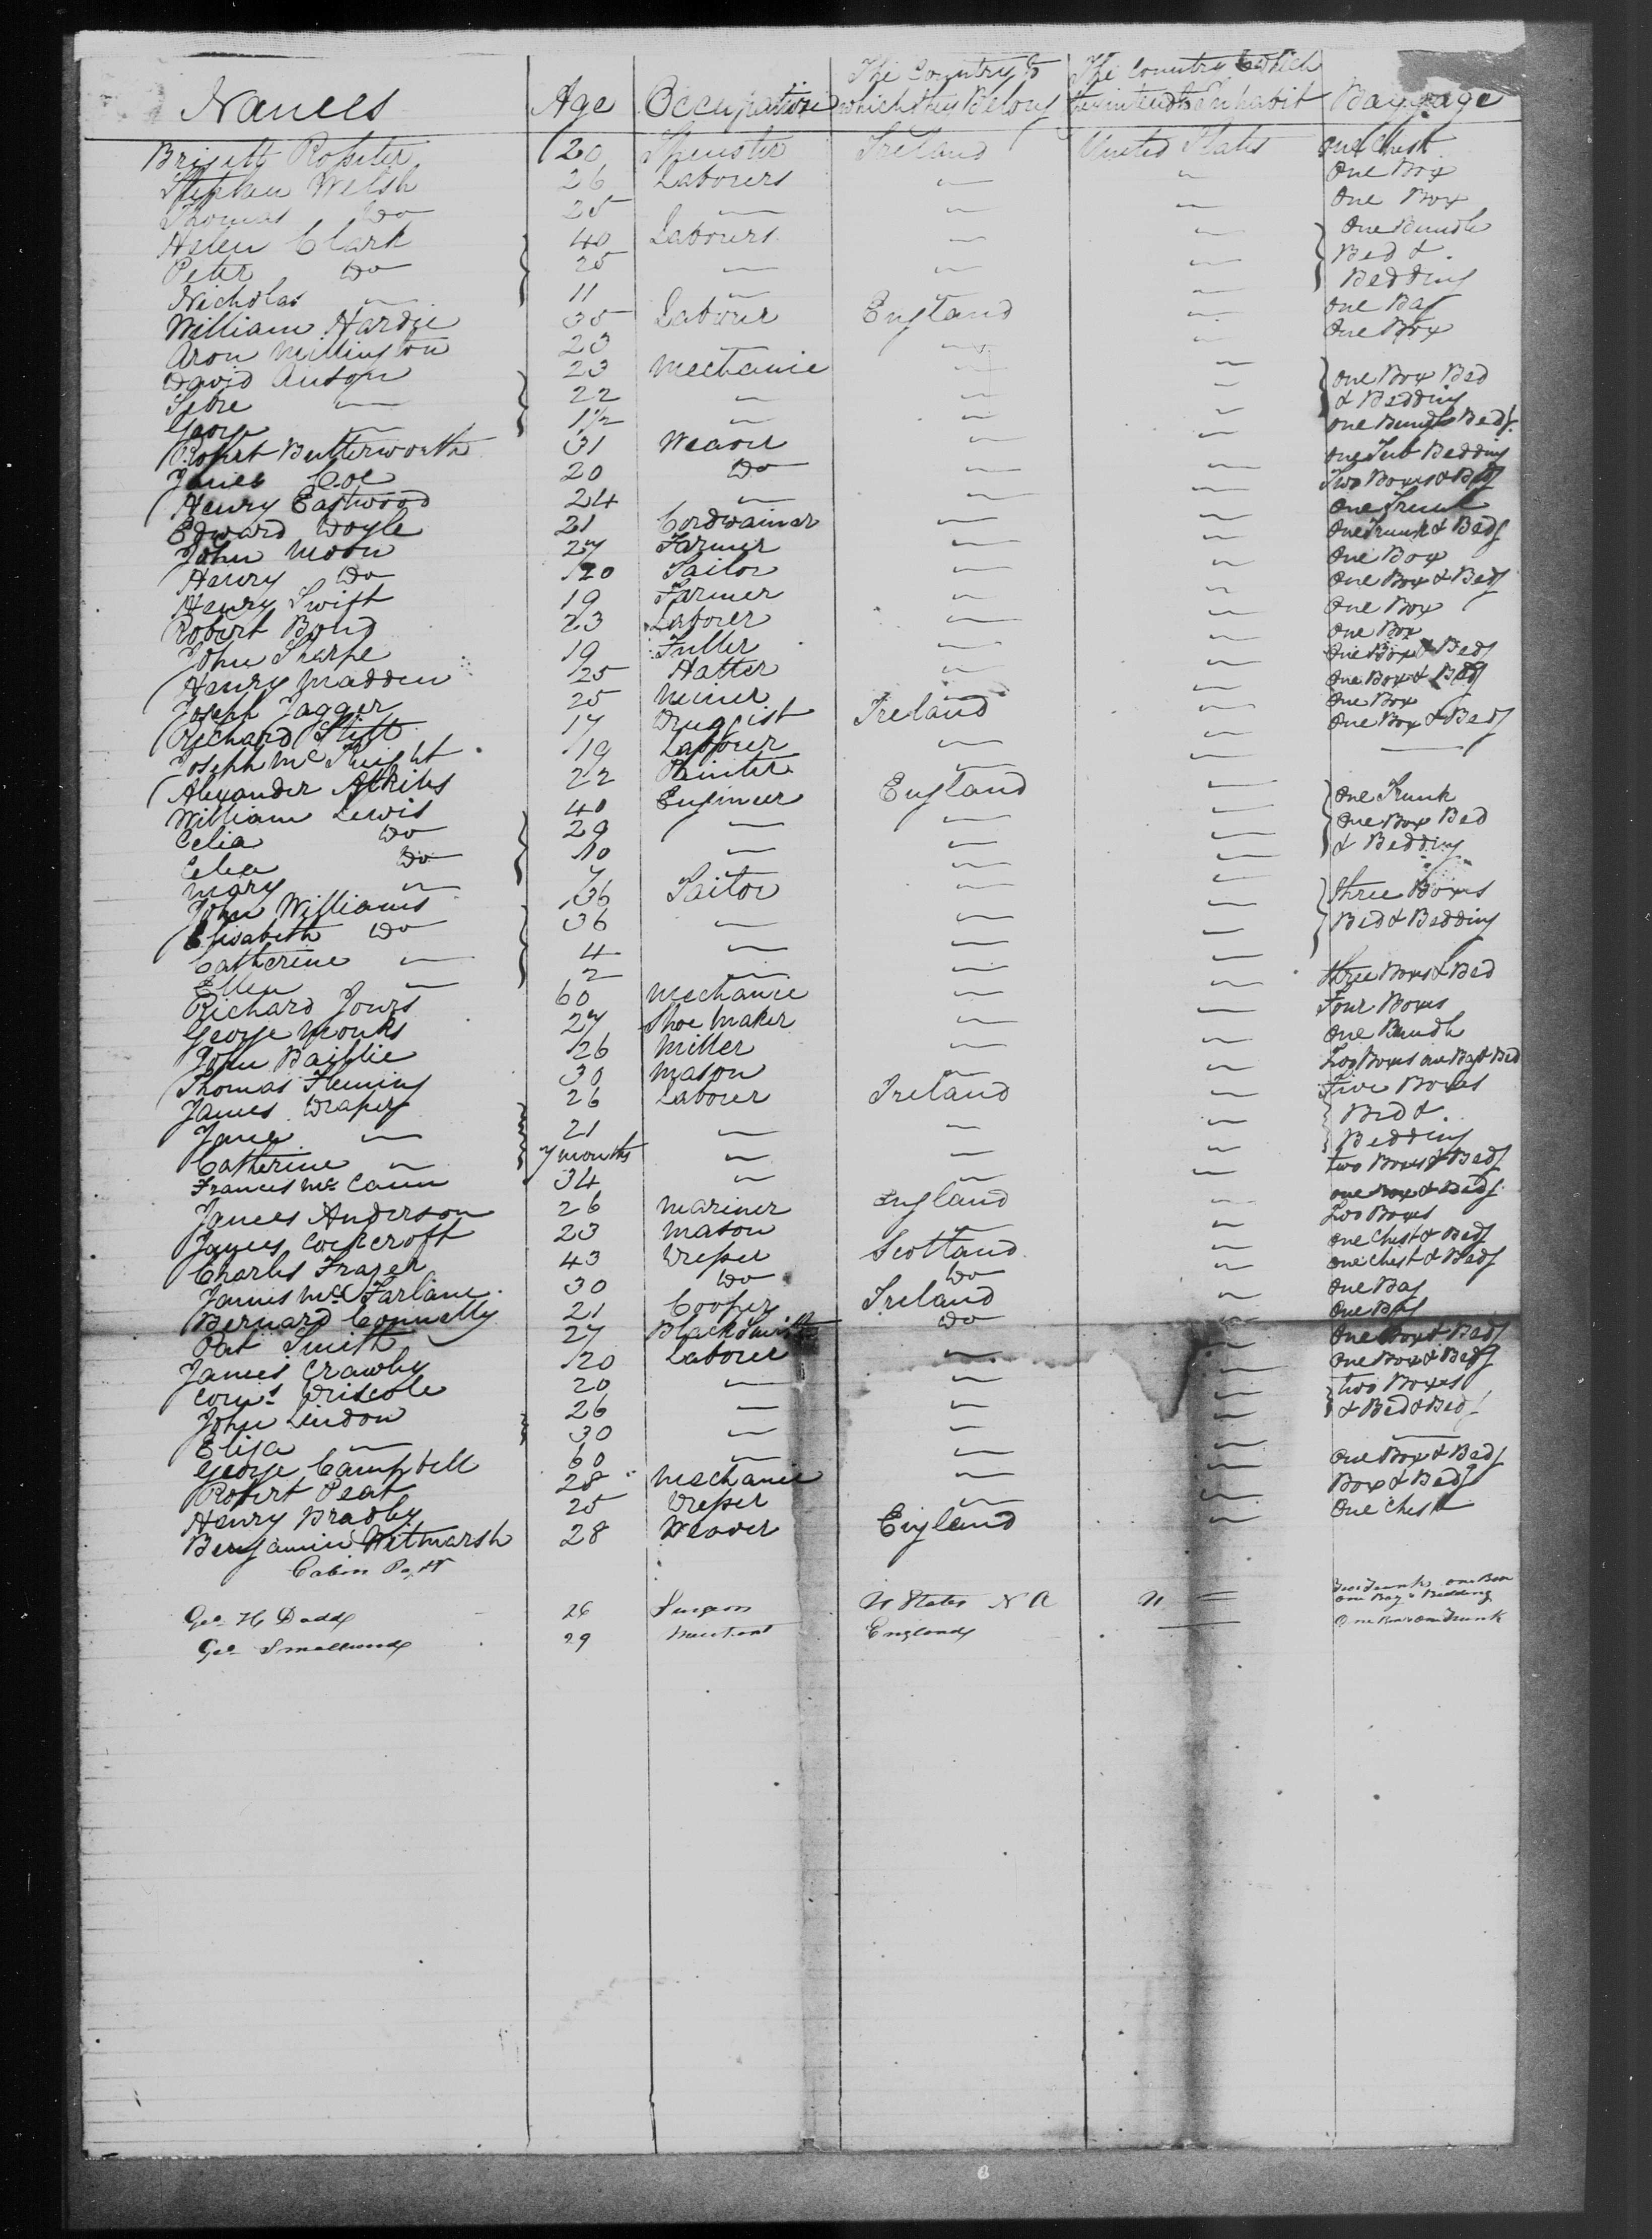 Names Age Occupation The Country to which they Belong The Country to Which they intend to Inhabit Baggage
Brigitt Rossiter 20 Spinster Ireland United States One Chest
Stephen Welsh 26 Laborers — — One Box
Thomas Do 25 — — — One Box
Helen Clark 40 Labours — — One Bundle
Peter Do 25 — — — Bed &
Nicholas — 11 — — — Bedding
William Hardie 35 Labour England — One Bag
Aron Millington 23 — — One Box
David 23 Mechanic — — One Box Bed
— 22 — — — & Bedding
George — 1 1/2 — — — One Bundle Bedg
Robert Butterworth 31 Weaver — — One Tub Bedding
James Coe 20 Do — — Two Boxes & Bedg
Henry Eastwood 24 — — — One Trunk
Edward Doyle 21 Cordwainer — — One Trunk & Bedg
John Moon 27 Farmer — — One Box
Henry Do 20 Tailor — — One Box & Bedg
Henry Swift 19 Farmer — — One Box
Robert Bond 23 Laborer — — One Box
John Sharpe 19 Fuller — — One Box & Bedg
Henry Madden 25 Hatter — — One Box & Bedg
Joseph Jagger 25 Miner — — One Box
Richard Stitt 17 Druggist Ireland — One Box & Bedg
Joseph Mc 19 Labourer — — —
Alexander Atkins 22 Painter — —
William Lewis 40 Engineer England — One Trunk
Celia Do 29 — — — One Box Bed
Do 10 — — — & Bedding
Mary — 7 — —
John Williams 36 Tailor — — Three Boxes
Elisabeth Do 36 — — — Bed & Bedding
Catherine — 4 — — —
Ellen — 2 — — — Three Boxes & Bed
Richard Jones 60 Mechanic — — Four Boxes
George Monks 27 Shoe Maker — — One Bundle
John Baillie 26 Miller — — Two Boxes one Bag & Bed
Thomas Fleming 30 Mason — — Five Boxes
James Draper 26 Laborer Ireland — Bed &
Jane — 21 — — — Bedding
Catherine — 7 months — — — Two Boxes & Bedg
Francis Mc Cann 34 — — — One Box & Bedg
James Anderson 26 Mariner England — Two Boxes
James Cockcroft 23 Mason — — One Chest & Bedg
Charles Frazer 43 Scotland — One Chest & Bedg
James McFarlane 30 Do Do One Bag
Bernard Connelly 21 Cooper Ireland — One Bag
Pat Smith 27 Blacksmith Do — One Box & Bedg
James Crawley 20 Laborer — — One Box & Bedg
Corns Driscole 20 — — — Two Boxes
John Lindon 26 — — — & Bed & Bedg
Eliza — 30 — — — —
George Campbell 60 — — — One Box & Bedg
Robert Peat 28 Mechanic — — Box & Bedg
Henry Bradley 25 — — One Chest
Benjamin Witmarsh 28 Weaver England —
Cabin
Geo H Dadd 26 Surgeon U States N A U = Two Trunks one Box one Bag & Bedding
Geo Smallwood 29 England — One Box one Trunk